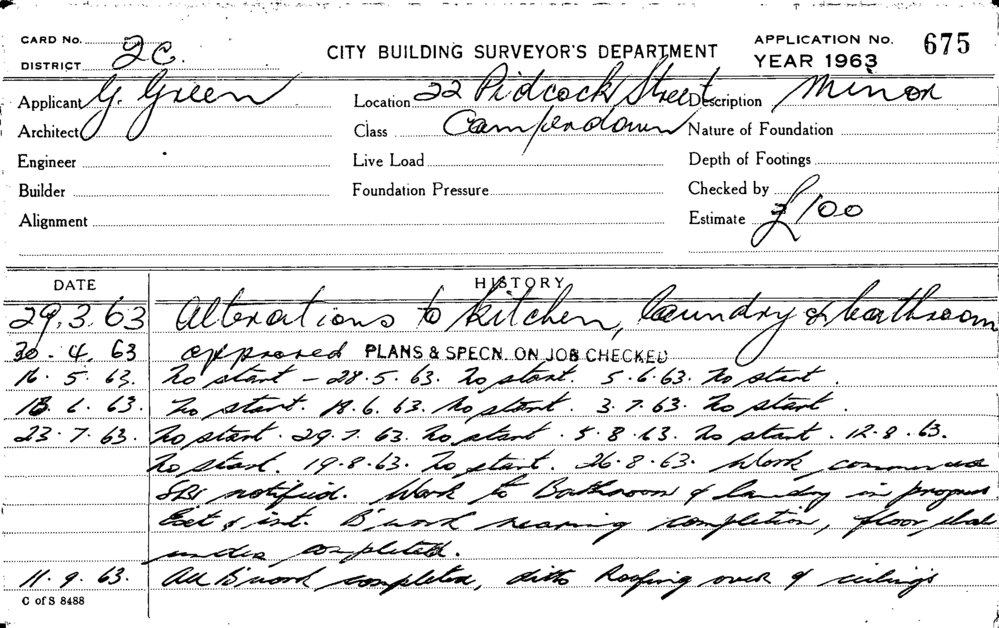 CARD No.
DISTRICT 2C.
CITY BUILDING SURVEYOR'S DEPARTMENT
APPLICATION No. 675
YEAR 1963
Applicant G. Green
Location 22 Pidcock Street
Description Minor
Architect
Class Camperdown
Nature of Foundation
Engineer
Live Load
Depth of Footings
Builder
Foundation Pressure
Checked by
Alignment
Estimate £100
DATE HISTORY
29.3.63 Alterations to kitchen, laundry & bathroom
30.4.63 approved PLANS & SPECN. ON JOB CHECKED
16.5.63. No start - 28.5.63. No start. 5.6.63. No start.
13.6.63. No start. 18.6.63. No start. 3.7.63. No start.
23.7.63. No start. 29.7.63. No start. 5.8.63. No start. 12.8.63.
No start. 19.8.63. No start. 26.8.63. Work commenced
notified. Work to Bathroom & laundry in progress
Ext & int. B'work nearing completion, floor slab
completed.
11.9.63. All B'work completed, ditto Roofing over & ceilings
C of S 8488